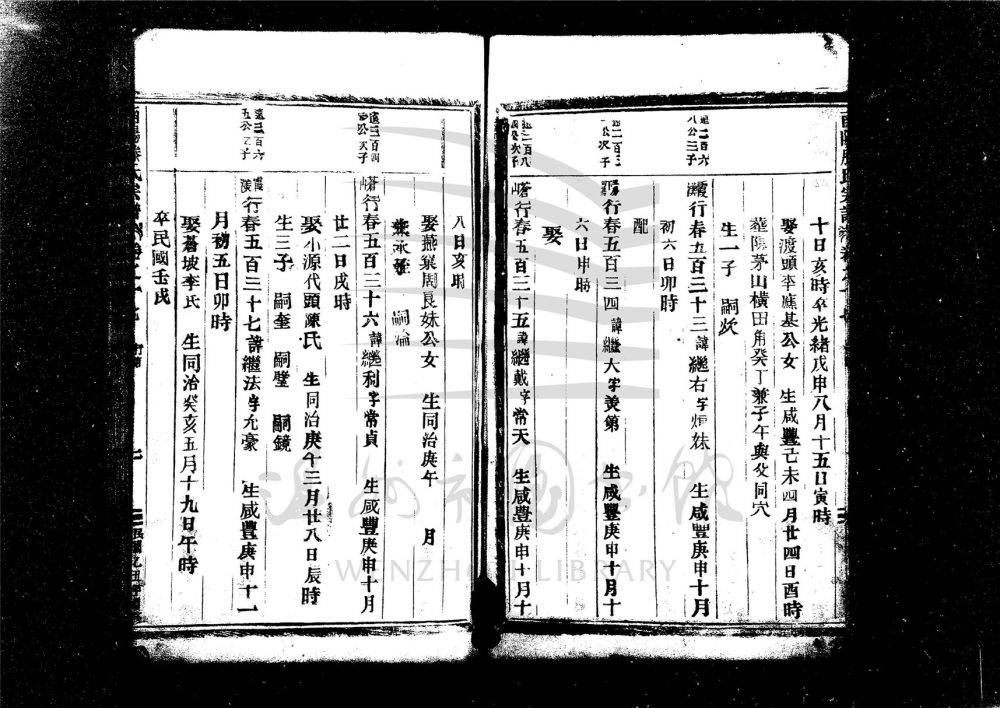 十日亥時卒光緒戊申八月十五日寅時
娶渡頭李應基公女 生咸豐己未四月廿四日酉時
華陽茅山橫田角癸丁兼子午與父同穴
生一子 嗣炊
遠二百六
八公三子
霞行春五百三十三諱繼右字煊妹 生咸豐庚申十月
初六日卯時
配
公次子
行春五百三四 諱繼大字美第 生咸豐庚申十月十
六日申時
娶
遠二百八
次子
行春五百三十五諱繼戴字常天 生咸豐庚申十月十
八日亥時
娶燕巢周良妹公女 生同治庚午 月
嗣淪
遠二百四
公次子
行春五百三十六諱繼利字常貞 生咸豐庚申十月
廿二日戌時
娶小源代頭陳氏 生同治庚午三月廿八日辰時
生三子 嗣奎 嗣璧 嗣鏡
遠二百六
五公子
行春五百三十七諱繼法字允豪 生咸豐庚申十一
月初五日卯時
娶蒼坡李氏 生同治癸亥五月十九日午時
卒民國壬戌
溫州市圖書館
WENZHOU LIBRARY